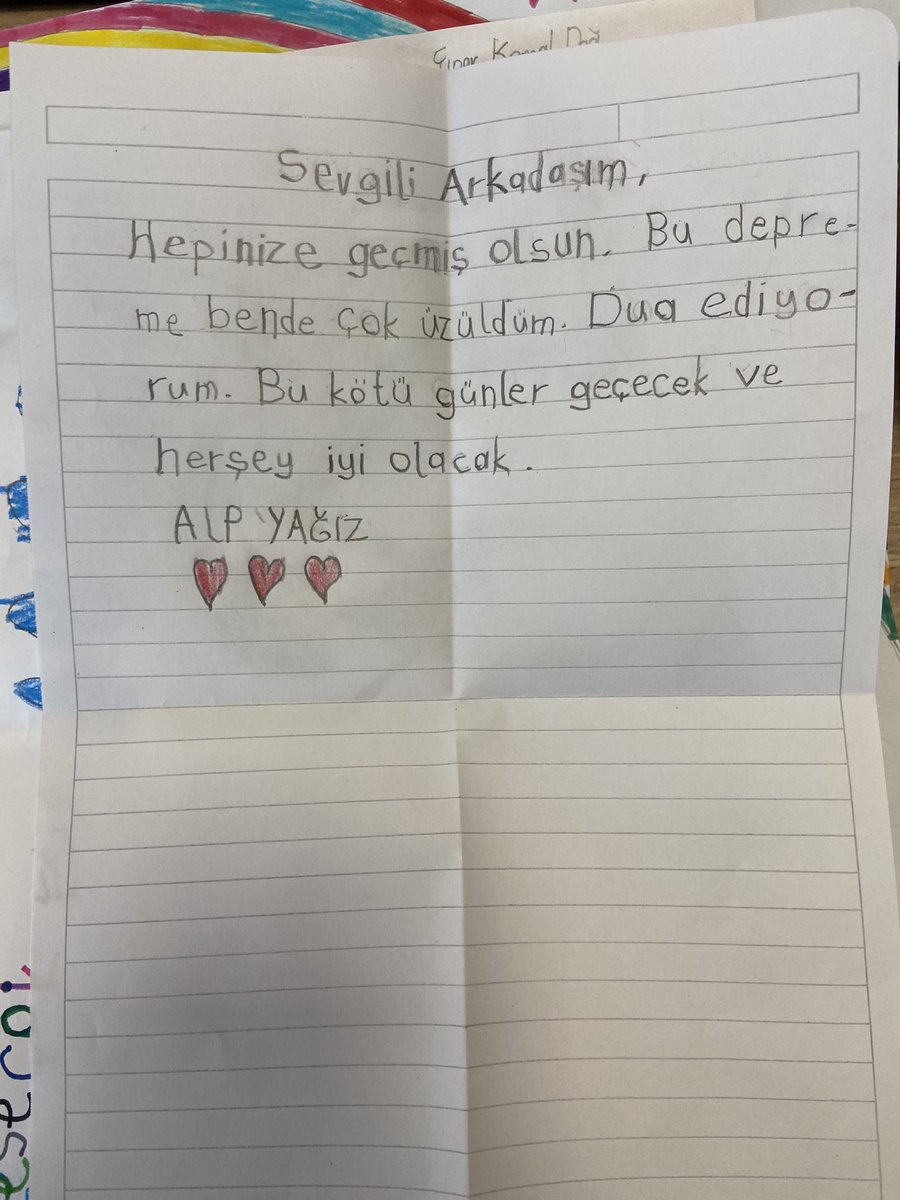 Çınar Kemal
Sevgili Arkadaşım,
Hepinize geçmiş olsun. Bu depre-
me bende çok üzüldüm. Dua ediyo-
rum. Bu kötü günler geçecek ve
herşey iyi olacak.
ALP YAĞIZ